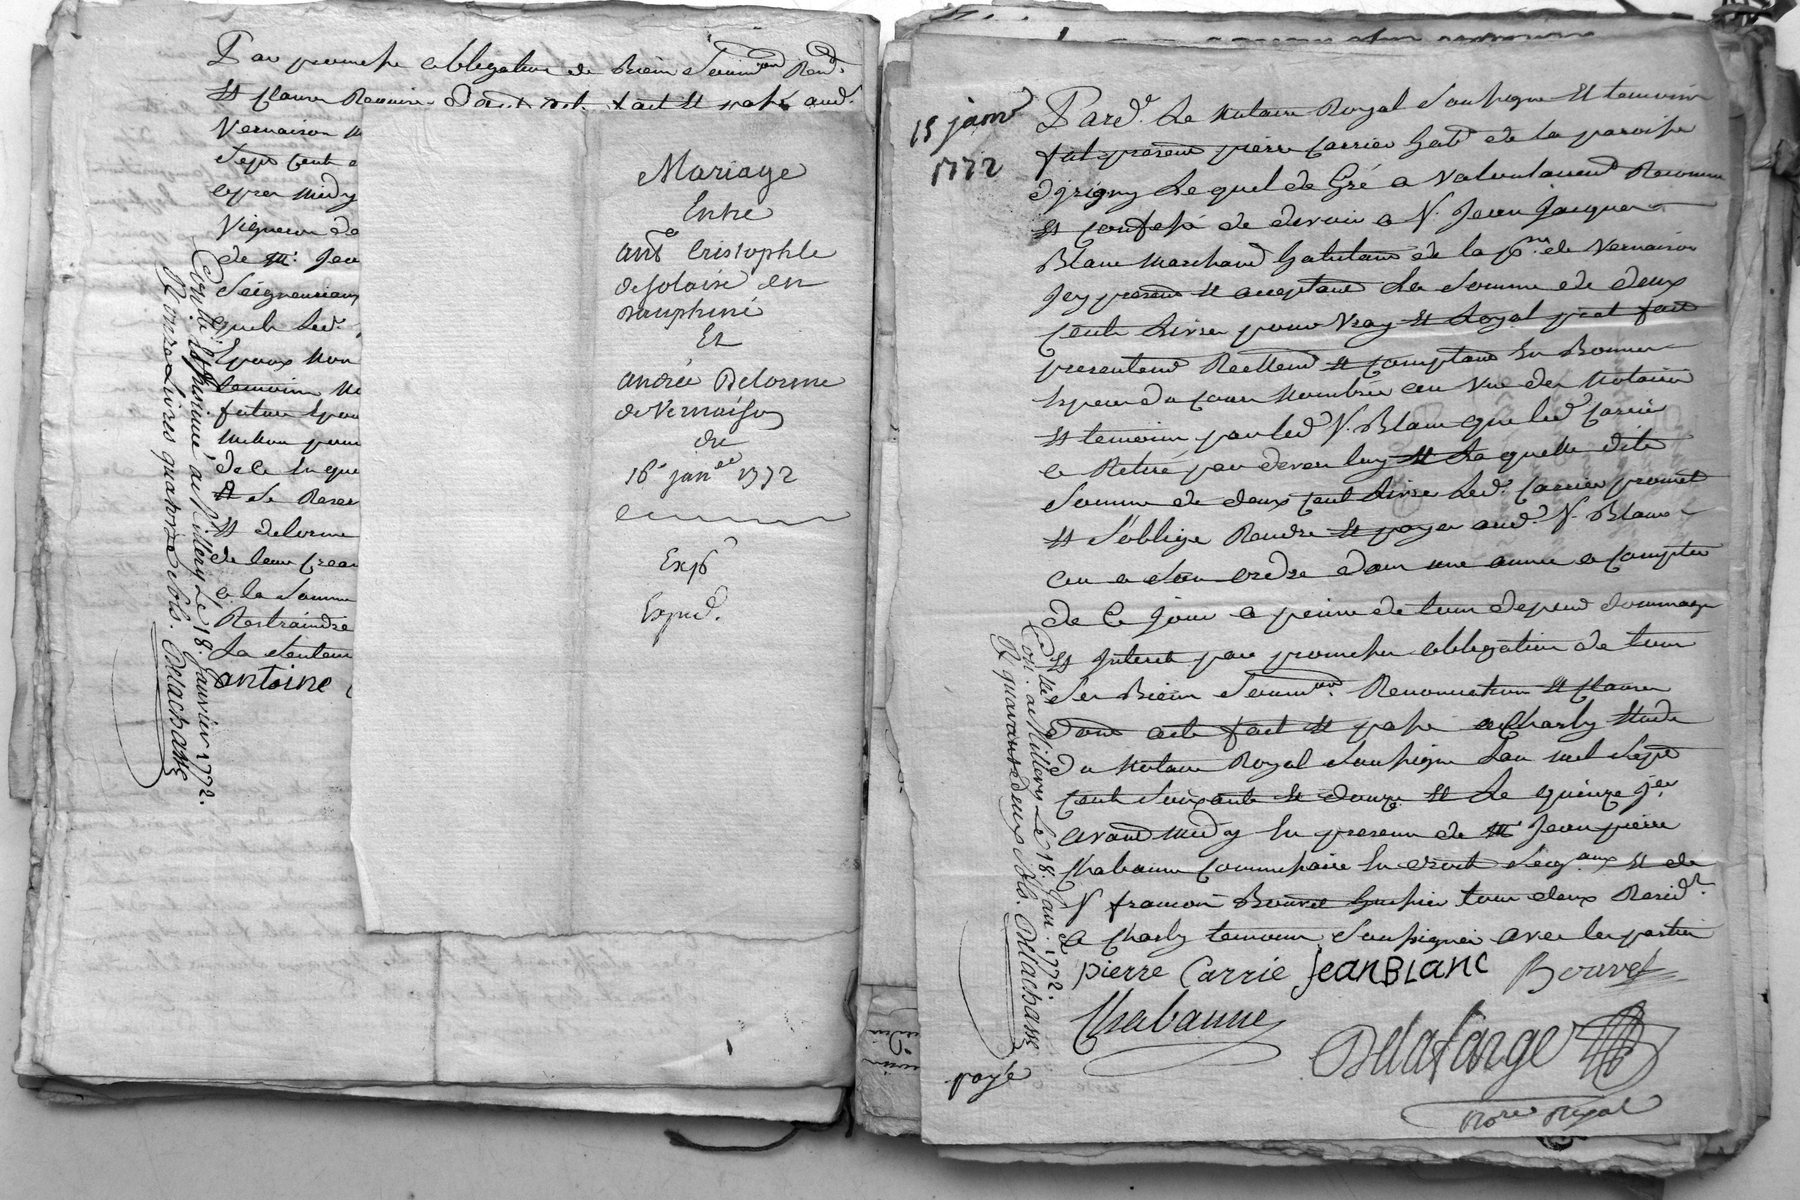 Par promesse obligation de Biens Soumon Rend.
Et Clauses Renonciaon Dont acte fait Et passé aud.
Vernaison
Sept Cent
apres midy
Vigneron de
de Mr. Jea
Seigneuriaux
quels Led.
Epoux
temoins
future Epou
de Se Reser
Et delorme
de leur
a la Somme
Restraindre
La
antoine
Conllé Et Insinué a Millery Le 18. Janvier 1772.
R. onze Livres quatorze Sols. Delachasse
Mariage
Entre
antne Cristophle
de Solaise en
Dauphiné
Et
andrée Delorme
de Vernaison
du
16e janer 1772
Expé
Expéd.
15 janvr
1772
Pard.t Le Notaire Royal Soussigné Et temoins
fut present pierre Carrier habt. de la paroisse
d'jrigny Lequel de Gré a Volontairemt Reconnu
Et Confessé de devoir a Sr. Jean Jacques
Blanc Marchand habitant de la pse. de Vernaison
Jcy present Et acceptant La Somme de deux
Cents Livres pour Vray Et Loyal prêt fait
presentemt Reellemt Et Comptant En Bonnes
Especes du Cours Nombrées au Vu des Notaire
Et temoins par led. Sr. Blanc que led. Carrier
a Retiré par devers luy Et Laquelle dite
Somme de deux Cent Livres Led. Carrier promet
Et S'oblige Rendre Et payer aud. Sr. Blanc
ou a Son ordre dans une année a Compter
de Ce Jour a peine de tous depens dommages
Et Interets par promesse obligation de tous
Ses Biens Soumon. Renonciation Et Clauses
dont acte fait Et passé a Charly Etude
du Notaire Royal Soussigné L'an mil Sept
Cents Soixante Et douze Et Le quinze jer
avant midy En presence de Me Jean pierre
Chabanne Commissaire En droits Seigaux Et de
Sr françois Bouvet huissier tous deux Residt.
a Charly temoins Soussignés avec les parties
pierre Carrie Jean Blanc Bouvet
Chabanne
Delaforge
Nore Royal
Conllé a Millery Le 18. Janer. 1772.
R. quarante deux Sols. Delachasse
payé